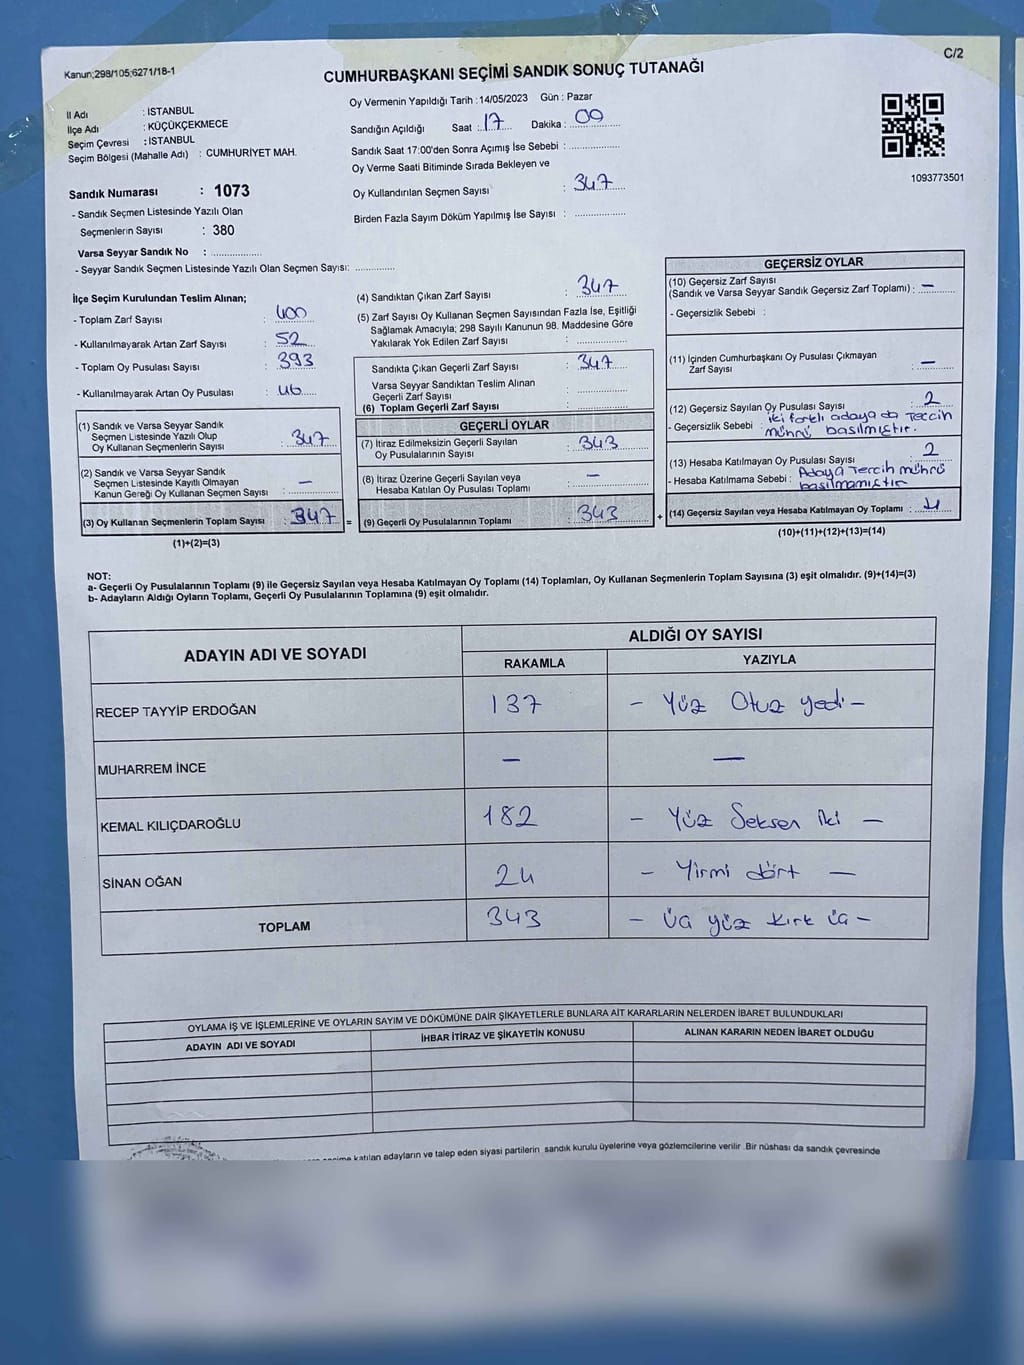 C/2
Kanun;298/105;6271/18-1
CUMHURBAŞKANI SEÇİMİ SANDIK SONUÇ TUTANAĞI
İl Adı : İSTANBUL
İlçe Adı : KÜÇÜKÇEKMECE
Seçim Çevresi : İSTANBUL
Seçim Bölgesi (Mahalle Adı) : CUMHURİYET MAH.
Sandık Numarası : 1073
- Sandık Seçmen Listesinde Yazılı Olan
Seçmenlerin Sayısı : 380
Varsa Seyyar Sandık No : ..................
- Seyyar Sandık Seçmen Listesinde Yazılı Olan Seçmen Sayısı: .............
Oy Vermenin Yapıldığı Tarih : 14/05/2023 Gün : Pazar
Sandığın Açıldığı Saat : 17 Dakika : 09
Sandık Saat 17:00'den Sonra Açımış İse Sebebi : ..................
Oy Verme Saati Bitiminde Sırada Bekleyen ve
Oy Kullandırılan Seçmen Sayısı : 347
Birden Fazla Sayım Döküm Yapılmış İse Sayısı : ..................
1093773501
İlçe Seçim Kurulundan Teslim Alınan;
- Toplam Zarf Sayısı : 400
- Kullanılmayarak Artan Zarf Sayısı : 52
- Toplam Oy Pusulası Sayısı : 393
- Kullanılmayarak Artan Oy Pusulası : 46
(1) Sandık ve Varsa Seyyar Sandık
Seçmen Listesinde Yazılı Olup
Oy Kullanan Seçmenlerin Sayısı : 347
(2) Sandık ve Varsa Seyyar Sandık
Seçmen Listesinde Kayıtlı Olmayan
Kanun Gereği Oy Kullanan Seçmen Sayısı : —
(3) Oy Kullanan Seçmenlerin Toplam Sayısı : 347 =
(1)+(2)=(3)
(4) Sandıktan Çıkan Zarf Sayısı : 347
(5) Zarf Sayısı Oy Kullanan Seçmen Sayısından Fazla İse, Eşitliği
Sağlamak Amacıyla; 298 Sayılı Kanunun 98. Maddesine Göre
Yakılarak Yok Edilen Zarf Sayısı : ..................
Sandıkta Çıkan Geçerli Zarf Sayısı : 347
Varsa Seyyar Sandıktan Teslim Alınan
Geçerli Zarf Sayısı : ..................
(6) Toplam Geçerli Zarf Sayısı : ..................
GEÇERLİ OYLAR
(7) İtiraz Edilmeksizin Geçerli Sayılan
Oy Pusulalarının Sayısı : 343
(8) İtiraz Üzerine Geçerli Sayılan veya
Hesaba Katılan Oy Pusulası Toplamı : —
(9) Geçerli Oy Pusulalarının Toplamı : 343 +
GEÇERSİZ OYLAR
(10) Geçersiz Zarf Sayısı
(Sandık ve Varsa Seyyar Sandık Geçersiz Zarf Toplamı) : —
- Geçersizlik Sebebi :
(11) İçinden Cumhurbaşkanı Oy Pusulası Çıkmayan
Zarf Sayısı : —
(12) Geçersiz Sayılan Oy Pusulası Sayısı : 2
- Geçersizlik Sebebi : iki farklı adaya da Tercih
mührü basılmıştır.
(13) Hesaba Katılmayan Oy Pusulası Sayısı : 2
- Hesaba Katılmama Sebebi : Adaya Tercih mührü
basılmamıştır
(14) Geçersiz Sayılan veya Hesaba Katılmayan Oy Toplamı : 4
(10)+(11)+(12)+(13)=(14)
NOT:
a- Geçerli Oy Pusulalarının Toplamı (9) ile Geçersiz Sayılan veya Hesaba Katılmayan Oy Toplamı (14) Toplamları, Oy Kullanan Seçmenlerin Toplam Sayısına (3) eşit olmalıdır. (9)+(14)=(3)
b- Adayların Aldığı Oyların Toplamı, Geçerli Oy Pusulalarının Toplamına (9) eşit olmalıdır.
ADAYIN ADI VE SOYADI
ALDIĞI OY SAYISI
RAKAMLA YAZIYLA
RECEP TAYYİP ERDOĞAN 137 - Yüz Otuz yedi -
MUHARREM İNCE — —
KEMAL KILIÇDAROĞLU 182 - Yüz Seksen iki -
SİNAN OĞAN 24 - Yirmi dört -
TOPLAM 343 - Üç yüz kırk üç -
OYLAMA İŞ VE İŞLEMLERİNE VE OYLARIN SAYIM VE DÖKÜMÜNE DAİR ŞİKAYETLERLE BUNLARA AİT KARARLARIN NELERDEN İBARET BULUNDUKLARI
ADAYIN ADI VE SOYADI İHBAR İTİRAZ VE ŞİKAYETİN KONUSU ALINAN KARARIN NEDEN İBARET OLDUĞU
katılan adayların ve talep eden siyasi partilerin sandık kurulu üyelerine veya gözlemcilerine verilir. Bir nüshası da sandık çevresinde